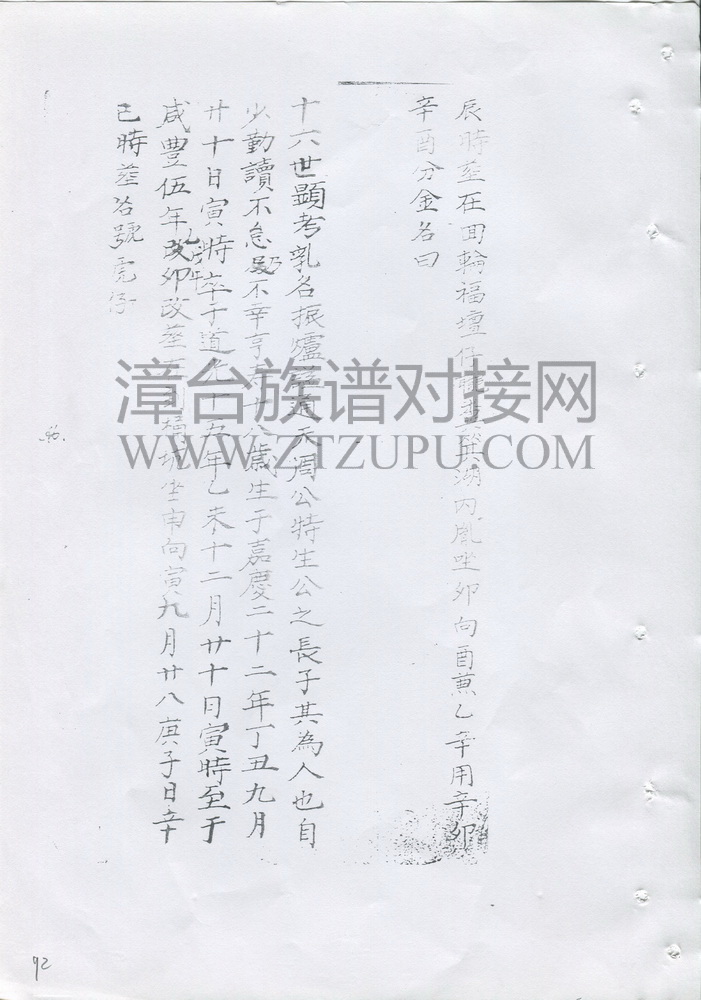 辰時葬在回輪福壇仔龍真與湖内胤坐卯向酉兼乙辛用辛卯
辛酉分金名曰
十六世顯考乳名振爐天潤公特生公之長子其為人也自
少勤讀不怠不幸享十八歲生于嘉慶二十二年丁丑九月
廿十日寅時卒于道光十五年乙未十二月廿十日寅時至于
咸豐伍年乙卯年改葬坐申向寅九月廿八庚子日辛
巳時葬名號虎仔
漳台族谱对接网
WWW.ZTZUPU.COM
92